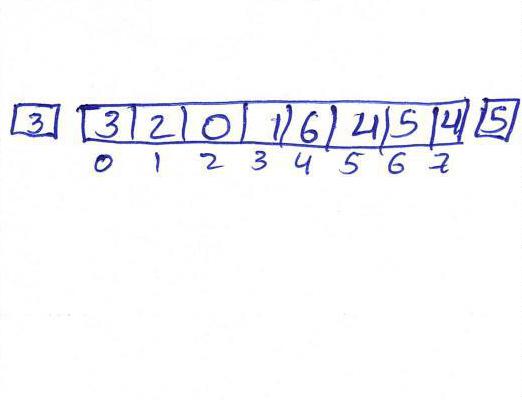 3 3 2 0 1 6 4 5 4 5
0 1 2 3 4 5 6 7